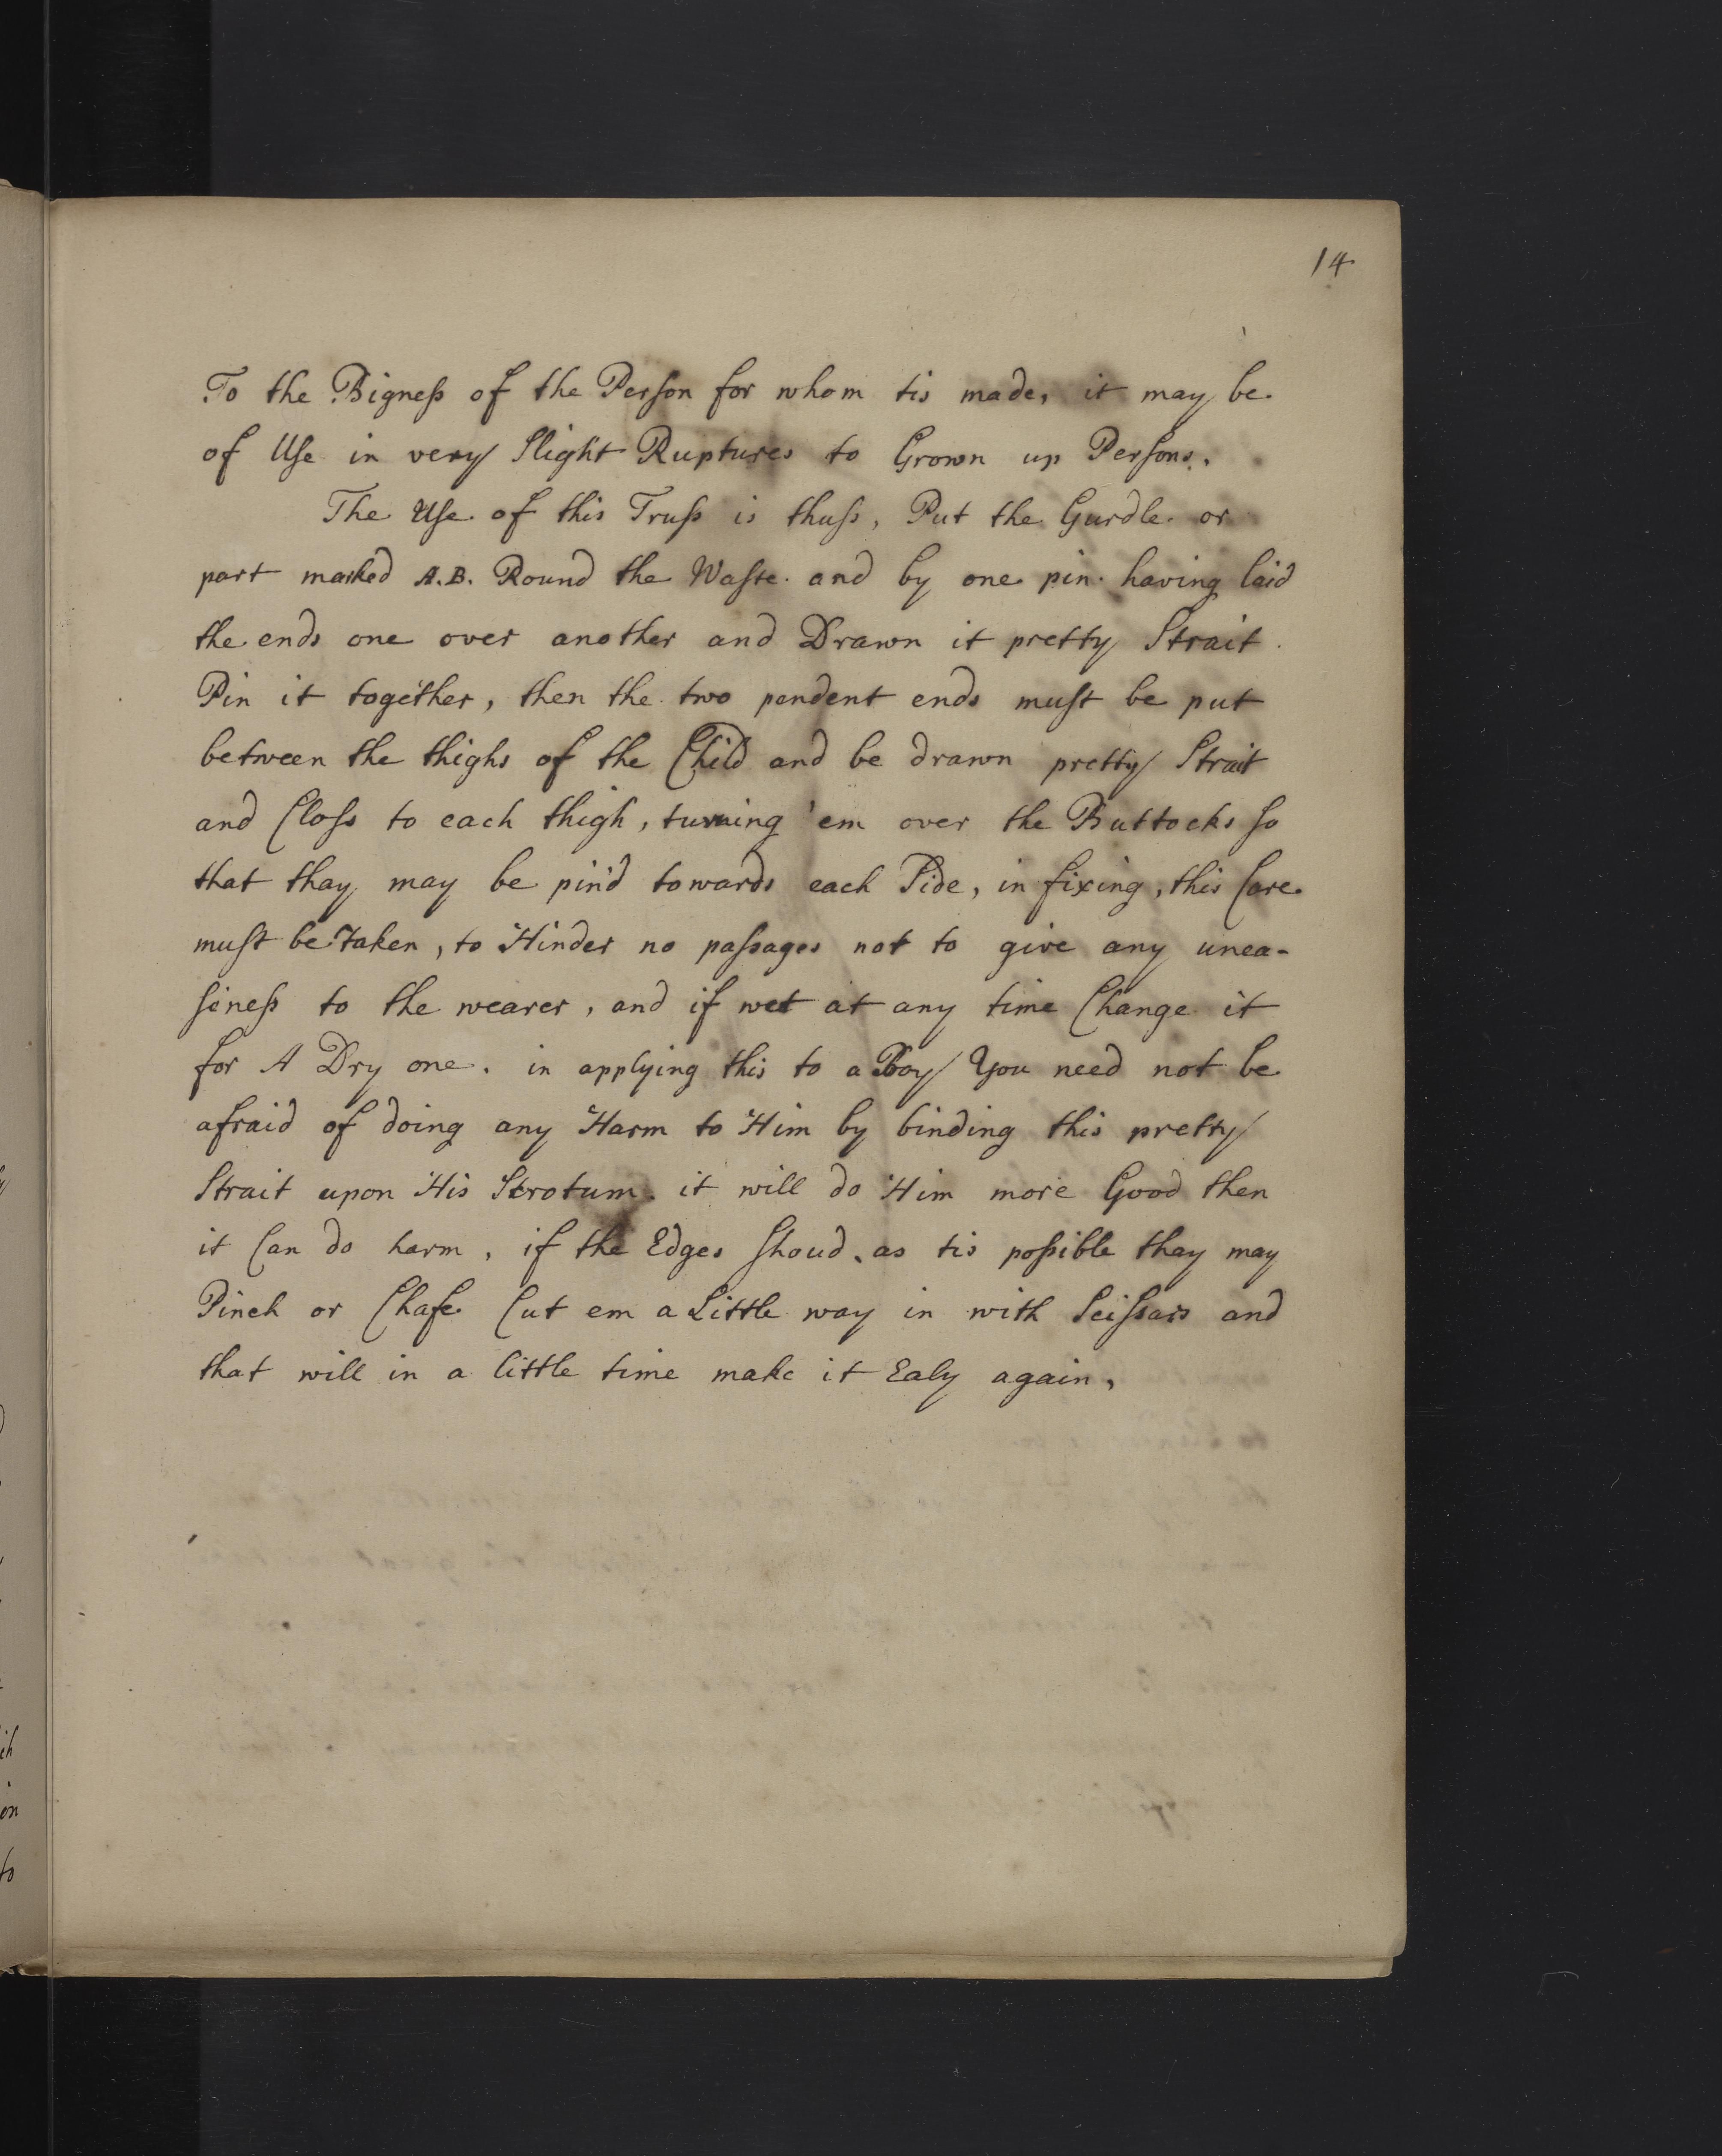 14
To the Bigneſs of the Perſon for whom tis made, it may be
of Uſe in very Slight Ruptures to Grown up Perſons.
The Uſe of this Truſs is thuſs, Put the Gurdle or
part marked A.B. Round the Waſte and by one pin having laid
the ends one over another and Drawn it pretty Strait
Pin it together, then the two pendent ends muſt be put
between the thighs of the Child and be drawn pretty Strait
and Cloſs to each thigh, turning 'em over the Buttocks ſo
that thay may be pin'd towards each Side, in fixing, this Care
muſt be Taken, to Hinder no paſsages not to give any unea-
ſineſs to the wearer, and if wet at any time Change it
for A Dry one. in applying this to a Boy You need not be
afraid of doing any Harm to Him by binding this pretty
Strait upon His Scrotum. it will do Him more Good then
it Can do harm, if the Edges Shoud, as tis poſsible thay may
Pinch or Chafe Cut em a Little way in with Sciſsars and
that will in a little time make it Eaſy again,